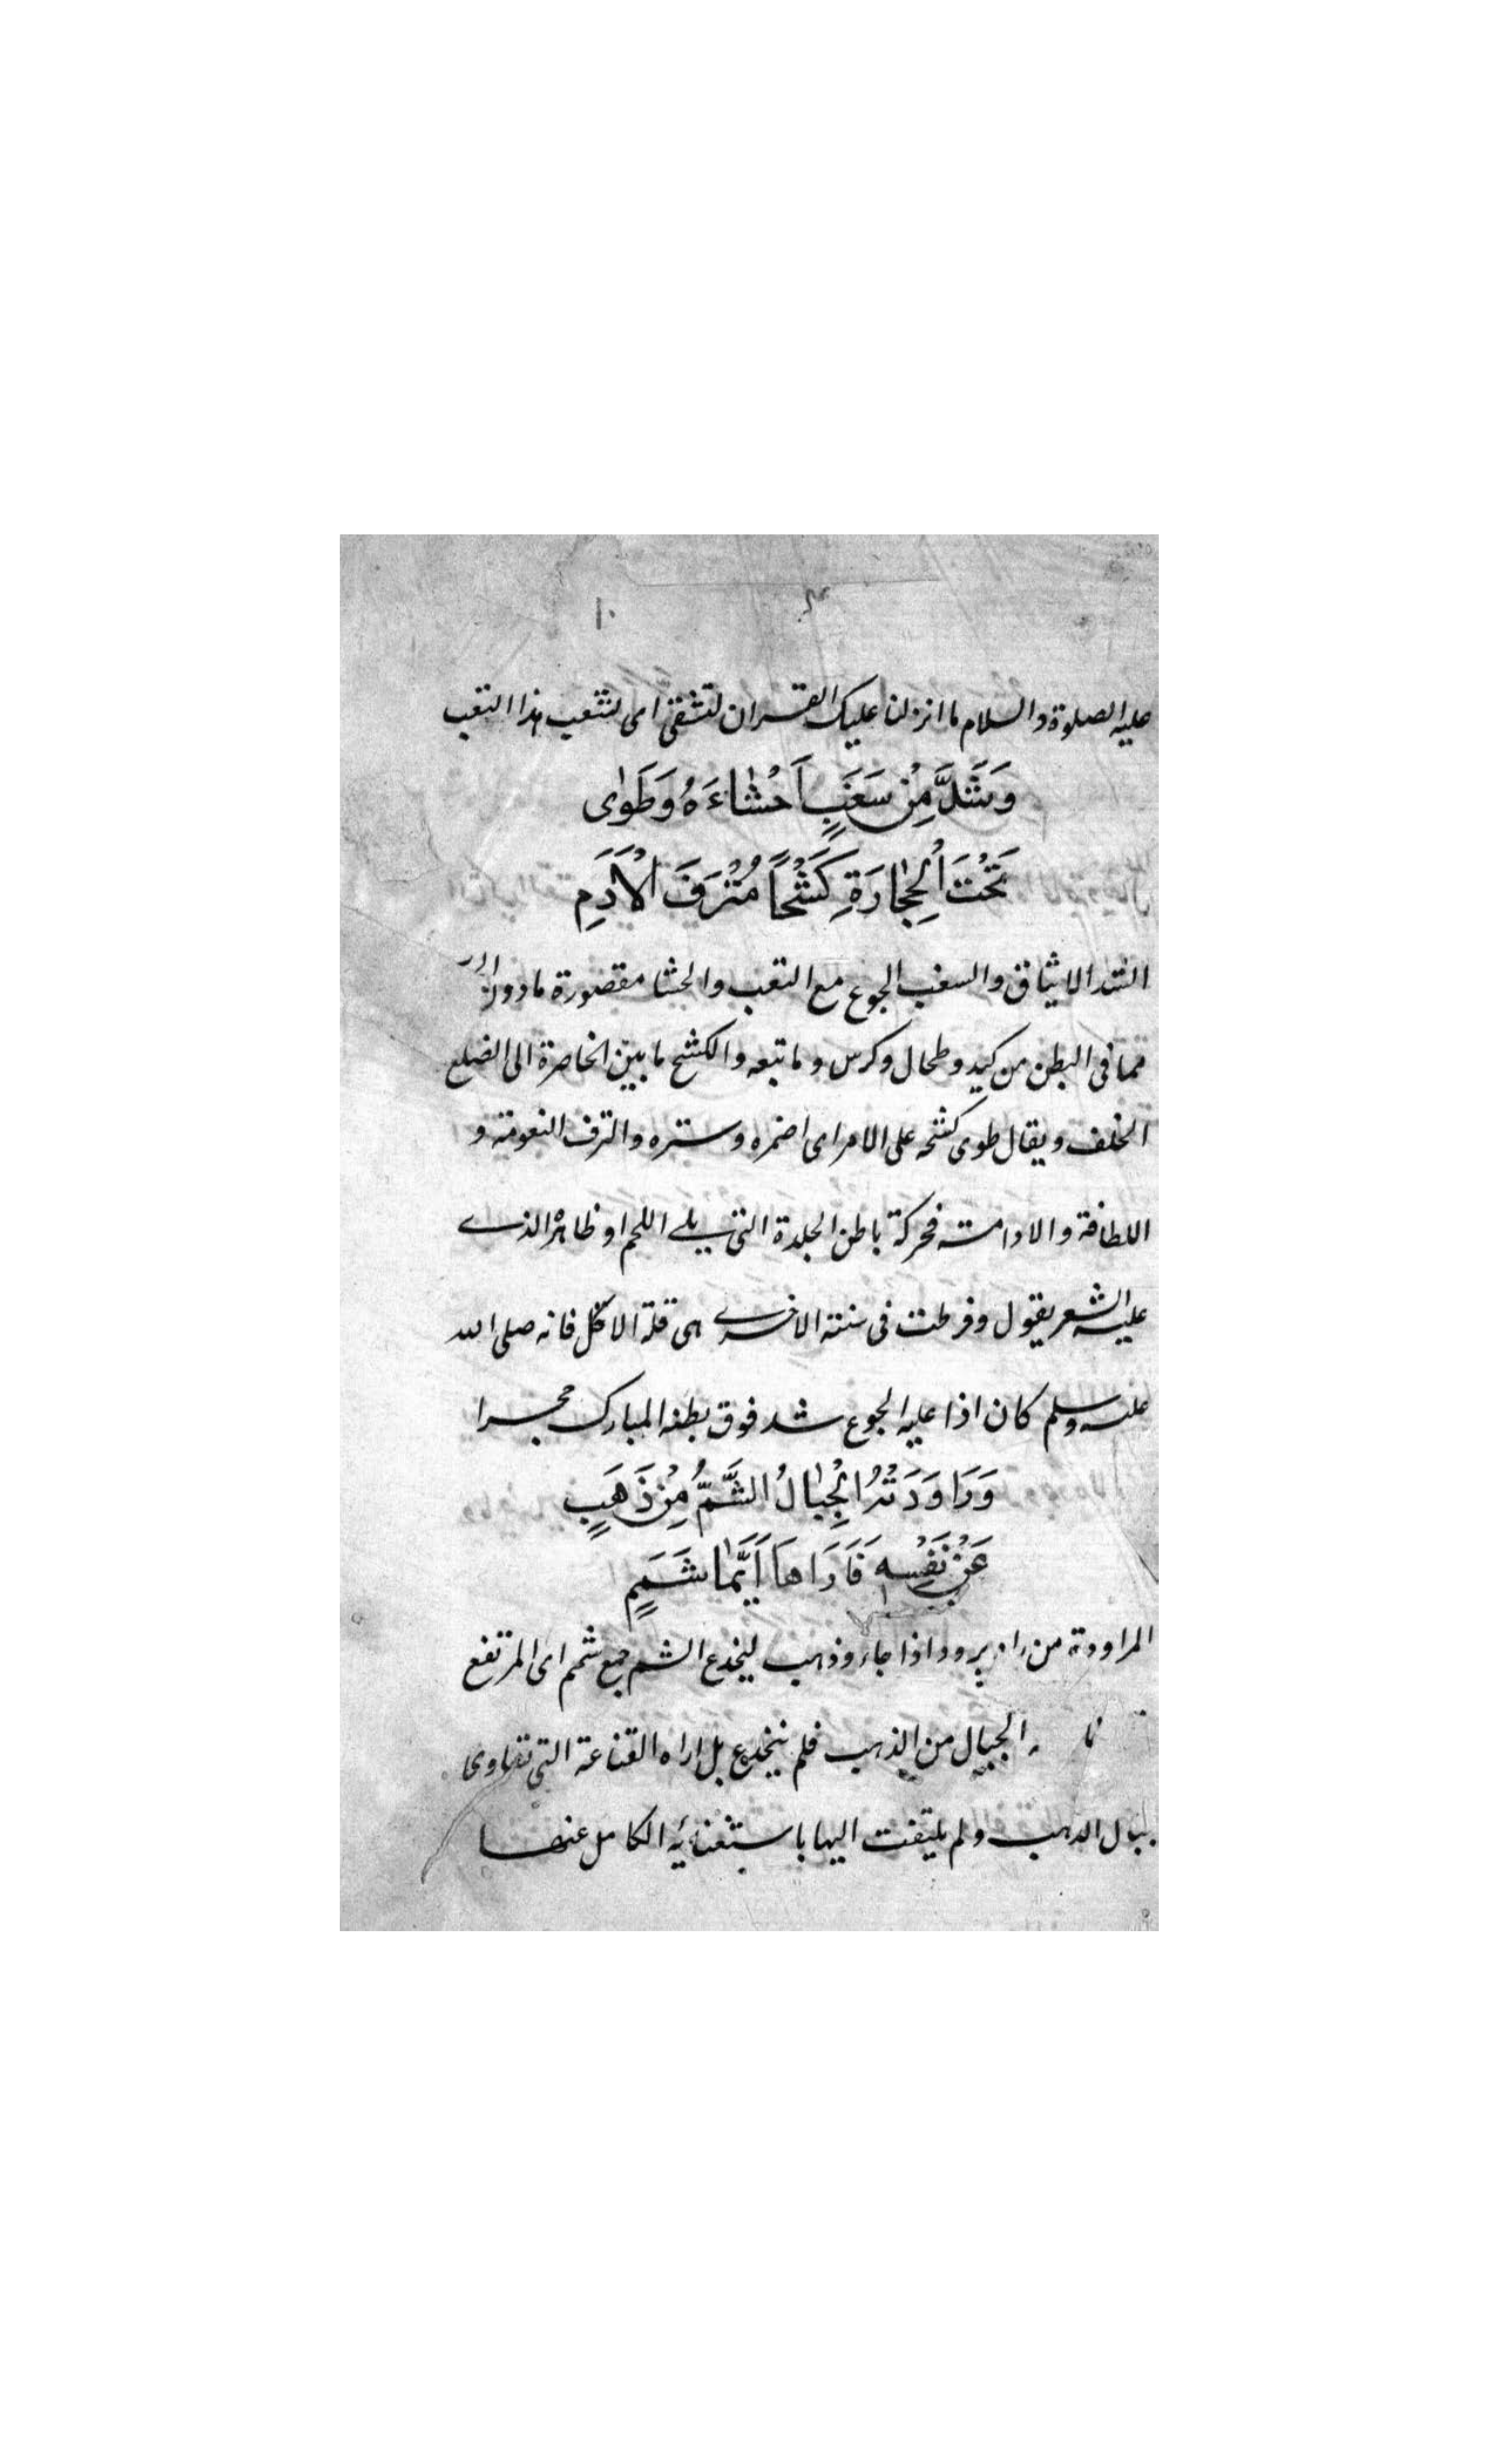 ١٠
عليه الصلوة والسلام ما انزلنا عليك القران لتشقى اى لتتعب هذا التعب
وَشَدَّ مِنْ سَغَبٍ اَحْشَاءَهُ وَطَوٰى
تَحْتَ الْحِجَارَةِ كَشْحًا مُتْرَفَ الْاَدَمِ
الشد الايثاق والسغب الجوع مع التعب والحشا مقصورة مادون
مما فى البطن من كبد وطحال وكرس وما تبعه والكشح ما بين الخاصرة الى الضلع
الخلف ويقال طوى كشحه على الامر اى اضمره وستره والترف النعومة و
اللطافة والادامة فحركة باطن الجلدة التى يلے اللحم او ظاهر الذے
عليه الشعر يقول وفرطت فى سنته الاخرے هى قلة الاكل فانه صلى الله
عليه وسلم كان اذا عليه الجوع شد فوق بطنه المبارك حجرا
وَرَاوَدَتْهُ الْجِبَالُ الشُّمُّ مِنْ ذَهَبٍ
عَنْ نَفْسِهٖ فَاَرَاهَا اَيَّمَا شَمَمٍ
المراودة من راد يرود اذا جاء وذهب ليخدع الشم جمع شمم اى المرتفع
الجبال من الذهب فلم ينخدع بل اراه القناعة التى تساوى
جبال الذهب ولم يلتفت اليها باستغنائه الكامل عنها